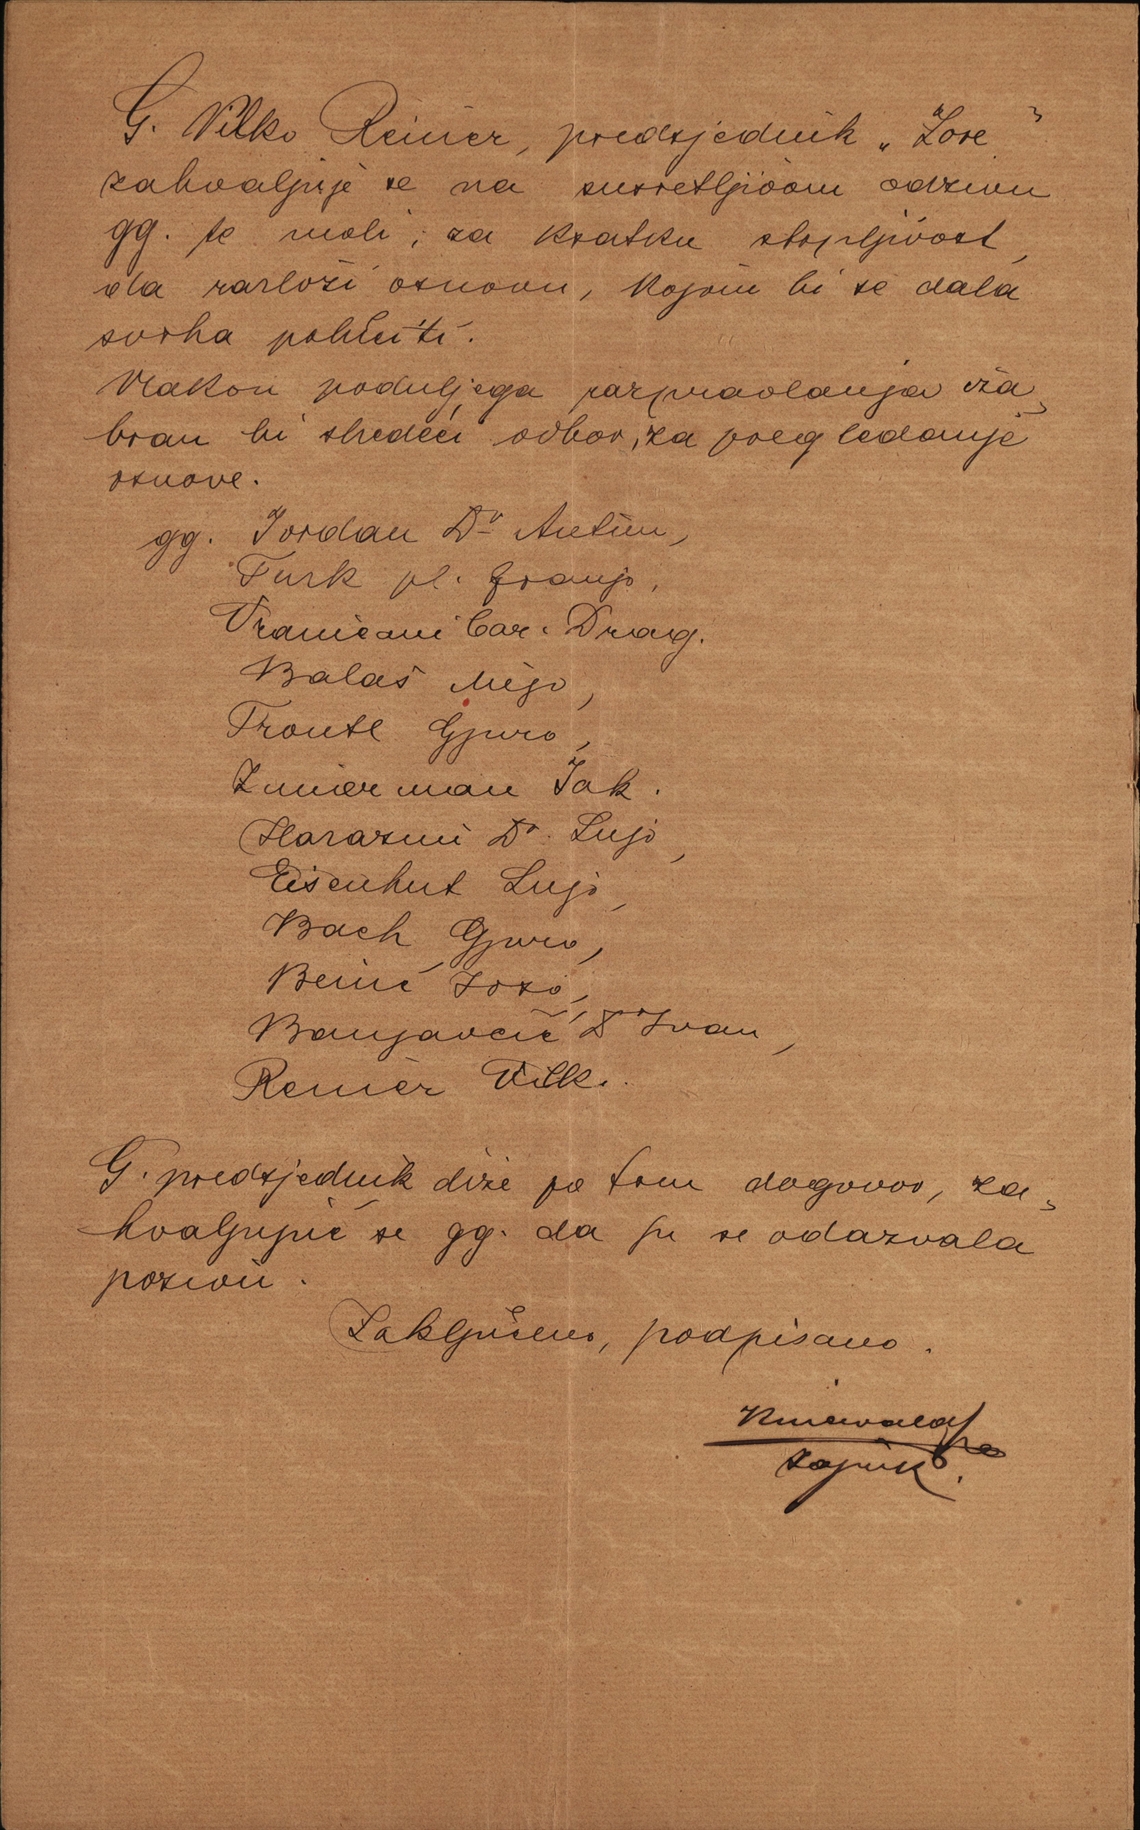 G. Vilko Reiner, predsjednik „Zore"
zahvaljuje se na susretljivom odzivu
gg. te moli, za kratku strpljivost,
da razloži osnovu, kojom bi se dala
svrha polučiti.
Nakon poduljega razpravlanja iza„
bran bi sliedeći odbor, za pregledanje
osnove.
gg. Jordan Dr Antun,
Turk pl. Franjo,
Vranicani bar. Drag.
Balaš Mijo,
Trontl Gjuro,
Zimerman Jak.
Harazmi Dr. Lujo,
Eisenhut Lujo,
Bach Gjuro,
Benić Joso,
Banjavčić Dr Ivan,
Reiner Vilko.
G. predsjednik diže po tom dogovor, za„
hvaljujuć se gg. da su se odazvala
pozivu.
Zaključeno, podpisano.
tajnik.